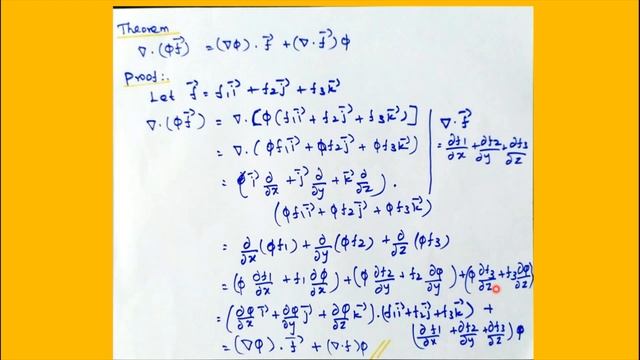 Theorem
∇·(φf⃗) = (∇φ)·f⃗ + (∇·f⃗)φ
Proof:-
Let f⃗ = f₁i⃗ + f₂j⃗ + f₃k⃗
∇·(φf⃗) = ∇·[φ(f₁i⃗ + f₂j⃗ + f₃k⃗)]
= ∇·(φf₁i⃗ + φf₂j⃗ + φf₃k⃗)
= (i⃗ ∂/∂x + j⃗ ∂/∂y + k⃗ ∂/∂z) ·
(φf₁i⃗ + φf₂j⃗ + φf₃k⃗)
= ∂/∂x (φf₁) + ∂/∂y (φf₂) + ∂/∂z (φf₃)
= (φ ∂f₁/∂x + f₁ ∂φ/∂x) + (φ ∂f₂/∂y + f₂ ∂φ/∂y) + (φ ∂f₃/∂z + f₃ ∂φ/∂z)
= (∂φ/∂x i⃗ + ∂φ/∂y j⃗ + ∂φ/∂z k⃗)·(f₁i⃗ + f₂j⃗ + f₃k⃗) +
(∂f₁/∂x + ∂f₂/∂y + ∂f₃/∂z) φ
= (∇φ)·f⃗ + (∇·f)φ //
∇·f⃗
= ∂f₁/∂x + ∂f₂/∂y + ∂f₃/∂z